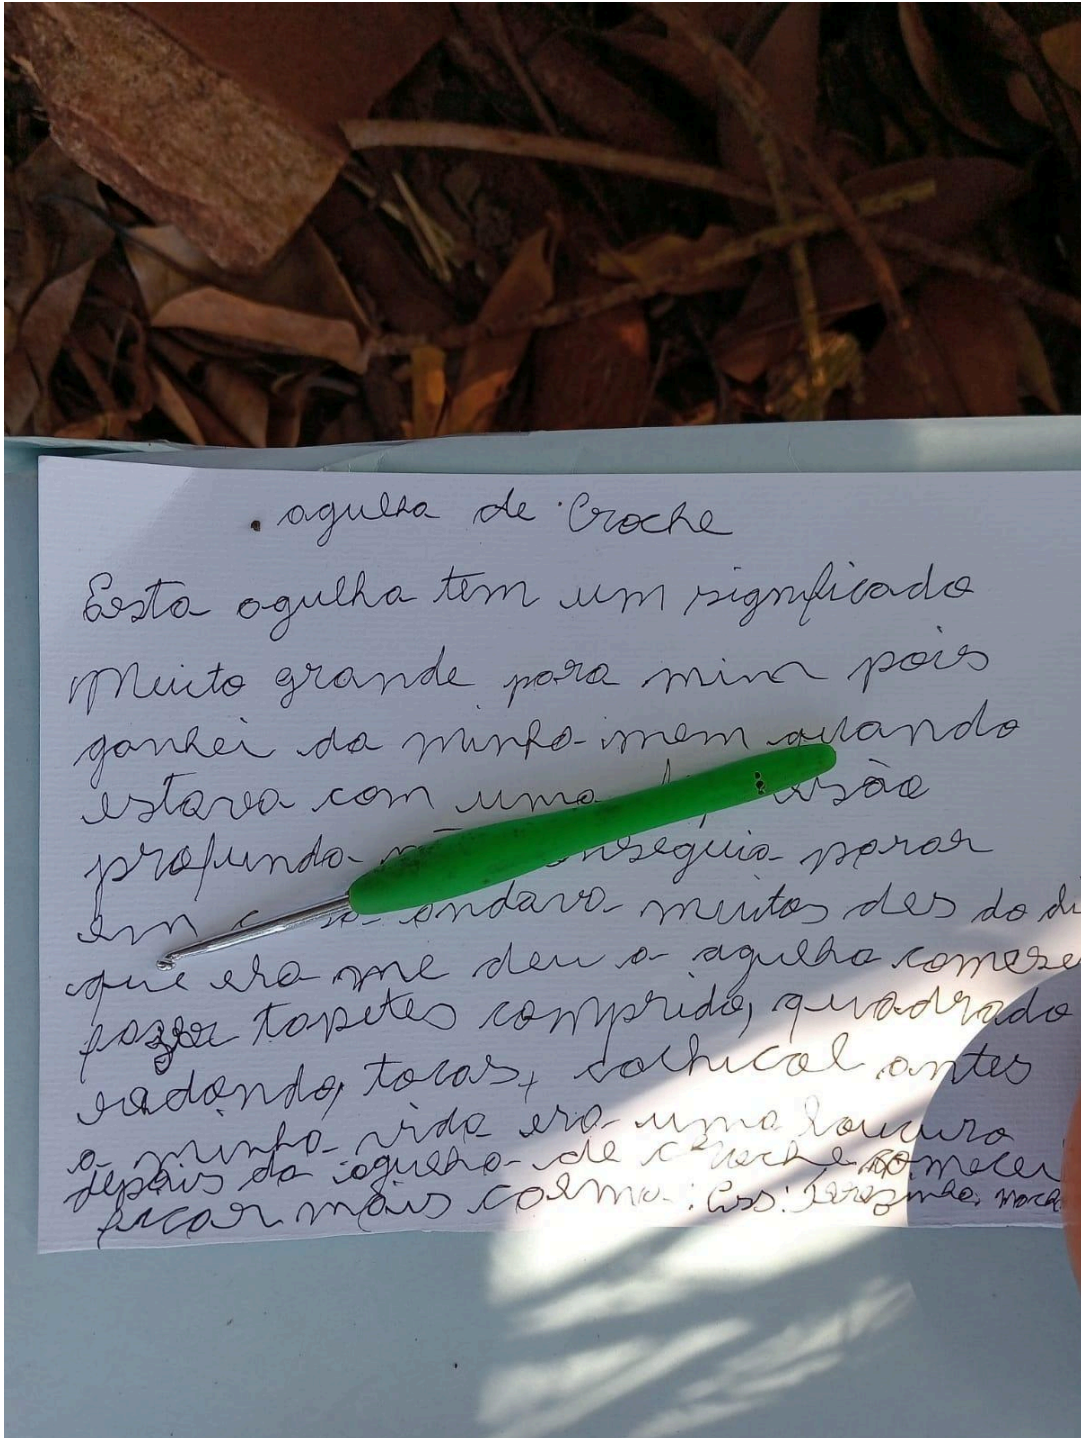 agulha de Croche
Esta agulha tem um significado
Muito grande para mim pois
ganhei da minha mem quando
estava com uma
profunda conseguia parar
em andava muitos des do di
que ela me deu a agulha comese
fazer tapetes comprido, quadrado
redondo, tocas, cachicol antes
a minha vida era uma loucura
depois da agulha de croche comecei
ficar mais calma. Ass: Terezinha,